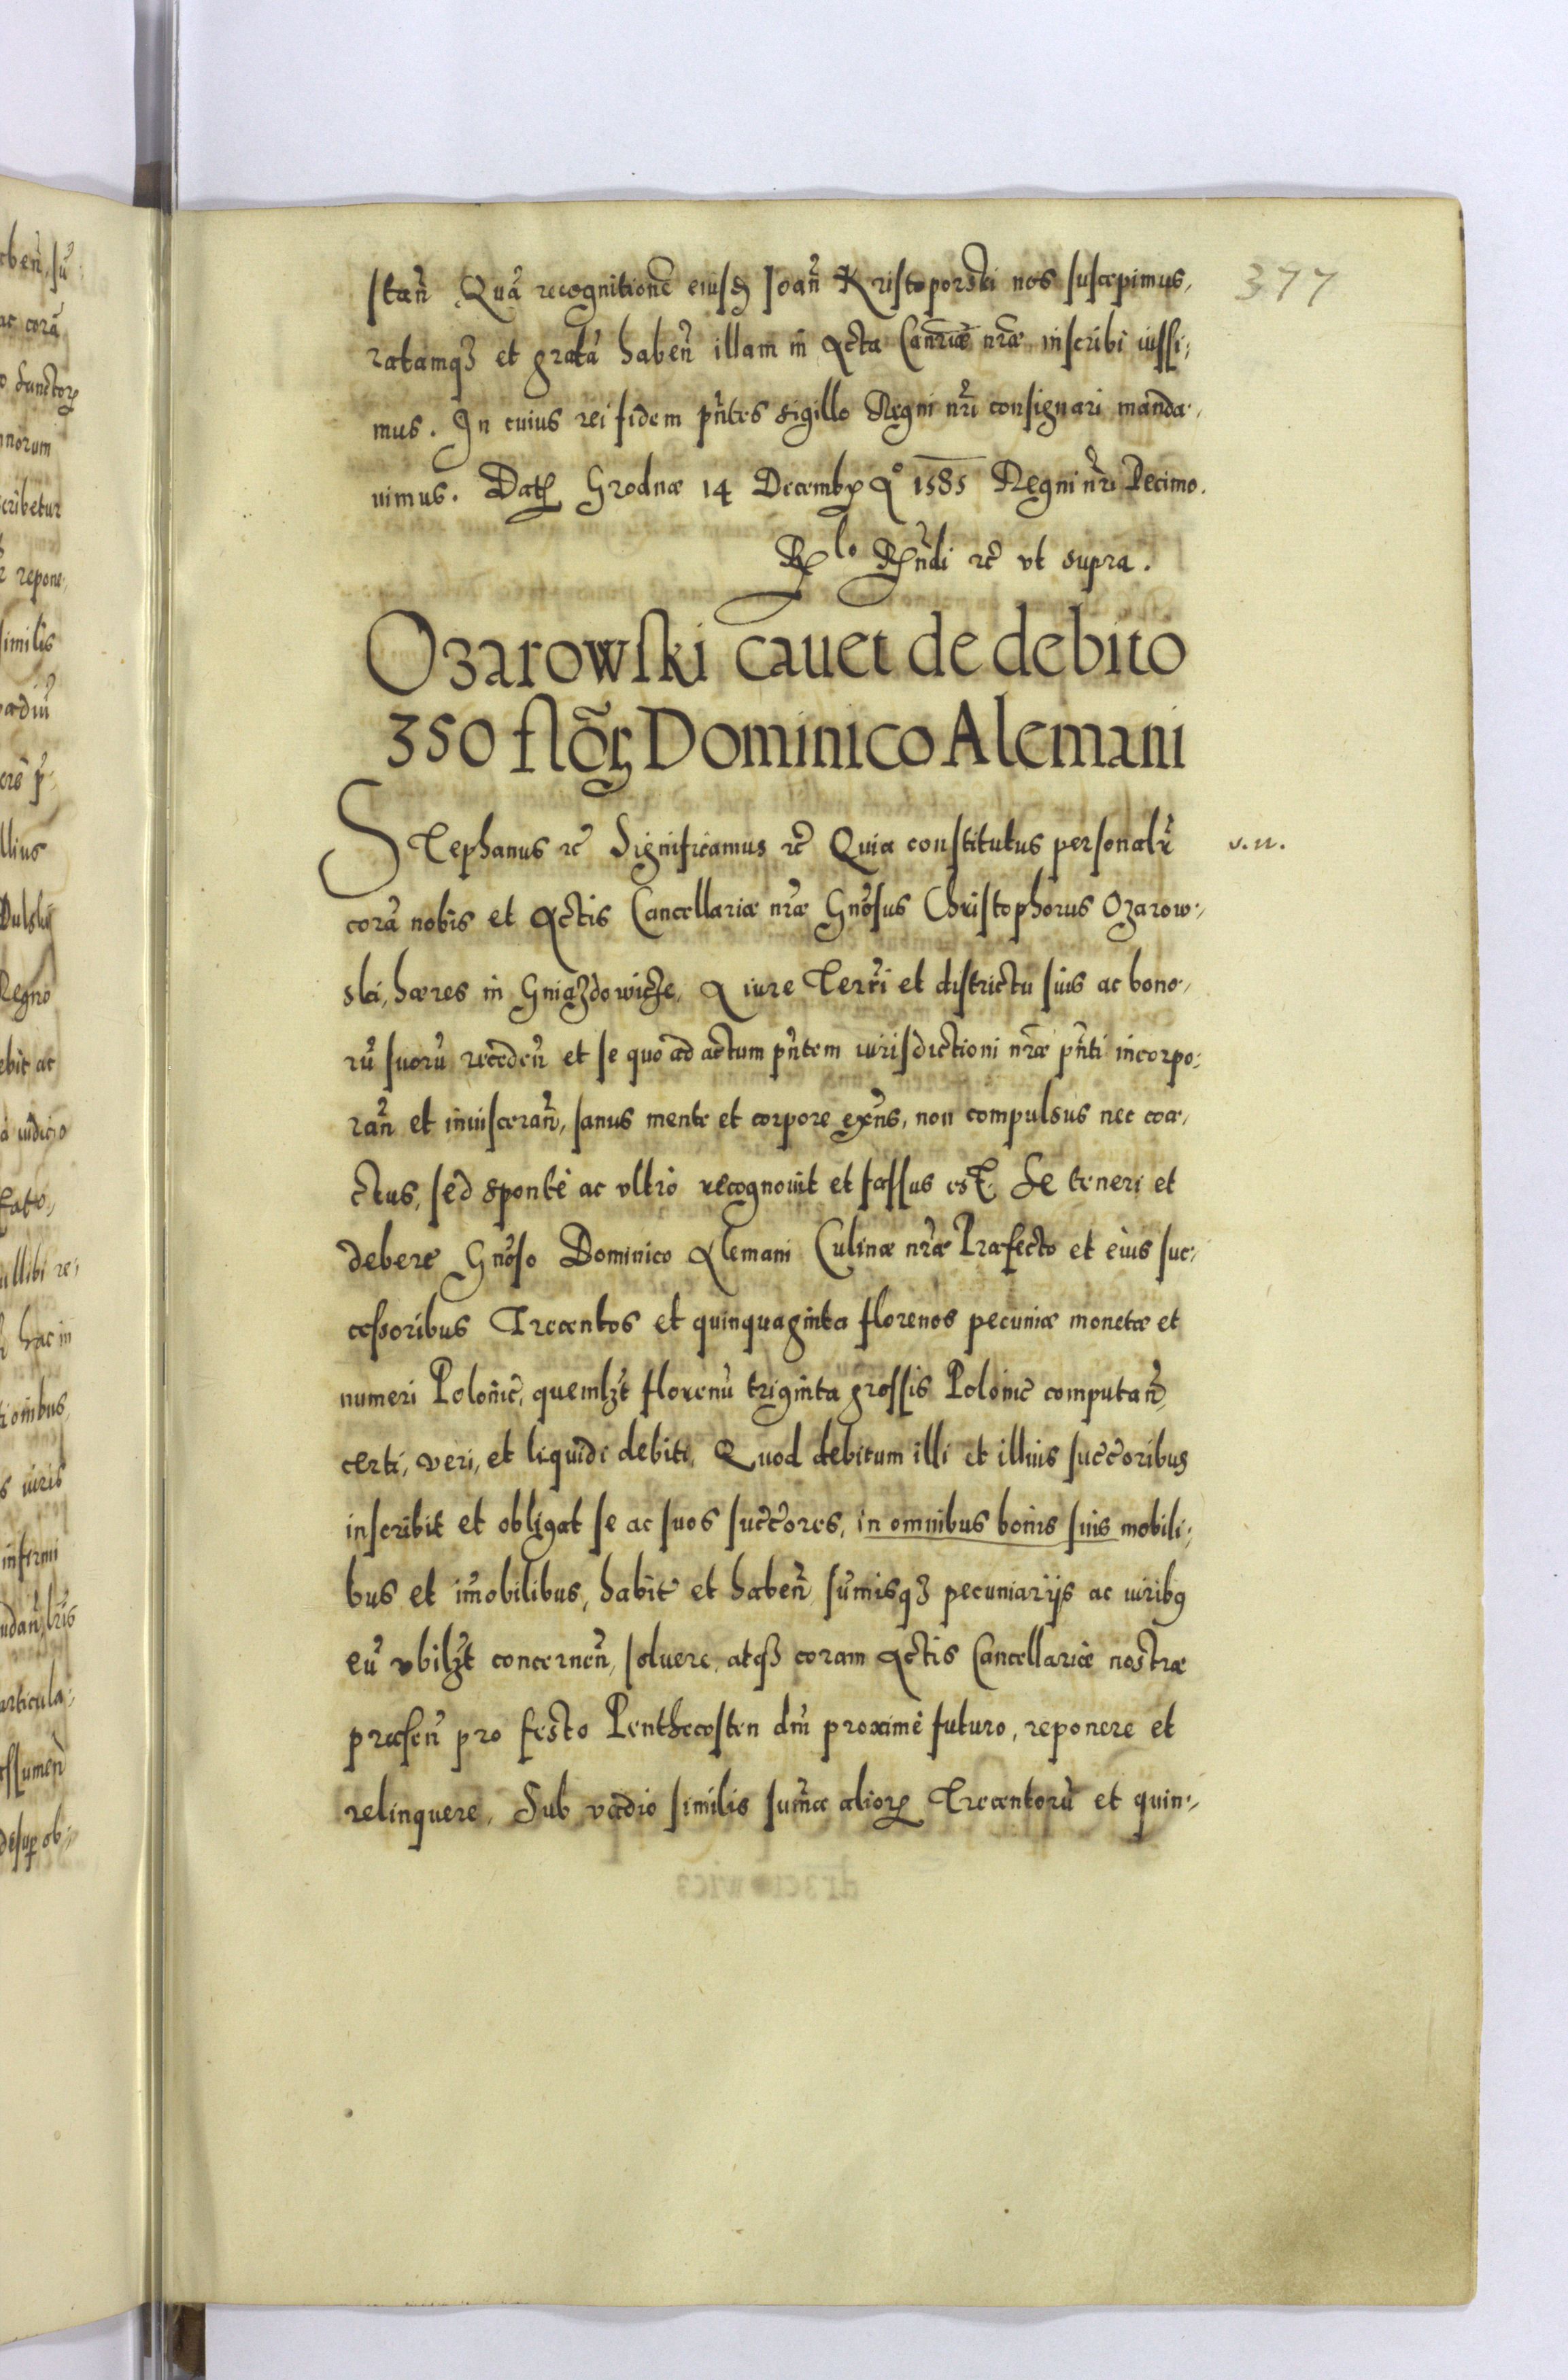 377
stan̄ Quā recognitionē eiusđ Joan̄ Kristoporski nos suscepimus,
ratamqȝ et gratā haben̄ illam in Acta Canr̄iæ nr̄æ inscribi iussi,
mus. In cuius rei fidem pn̄tes sigillo Regni nr̄i consignari manda,
uimus. Datꝫ Grodnæ 14 Decembꝝ Aº 1585 Regni nr̄i Decimo.
Rlo Rn̄di rc̄ vt supra.
Ozarowski cauet de debito
350 flōꝝ Dominico Alemani
Stephanus rc̄ Significamus rc̄ Quia constitutus personalr̄
v. n.
corā nobis et Actis Cancellariæ nr̄æ Gn̄osus Christophorus Ozarow,
ski, hæres in Gniazdowicze, A iure Terr̄i et districtu suis ac bono,
rū suorū recedēn et se quo ad actum pn̄tem iurisdictioni nr̄æ pn̄ti incorpo,
ran̄ et inuisceran̄, sanus mente et corpore exn̄s, non compulsus nec coa,
ctus, sed sponte ac vltro recognouit et fassus est. Se teneri et
debere Gn̄oso Dominico Alemani Culinæ nr̄æ Præfecto et eius suc,
cessoribus Trecentos et quinquaginta florenos pecuniæ monetæ et
numeri Polonic̄, quemlꝫt florenū triginta grossis Polonic̄ computan̄,
certi, veri, et liquidi debiti, Quod debitum illi et illius succ̄oribus
inscribit et obligat se ac suos succ̄ores, in omnibus bonis suis mobili,
bus et im̄obilibus, habit̄ et haben̄ sum̄isqȝ pecuniarijs ac iuribꝰ
eū vbilꝫt concernen̄, soluere, atqȝ coram Actis Cancellariæ nostræ
præsen̄ pro festo Penthecosten dn̄i proximè futuro, reponere et
relinquere, Sub vadio similis sum̄æ alioꝝ Trecentorū et quin,